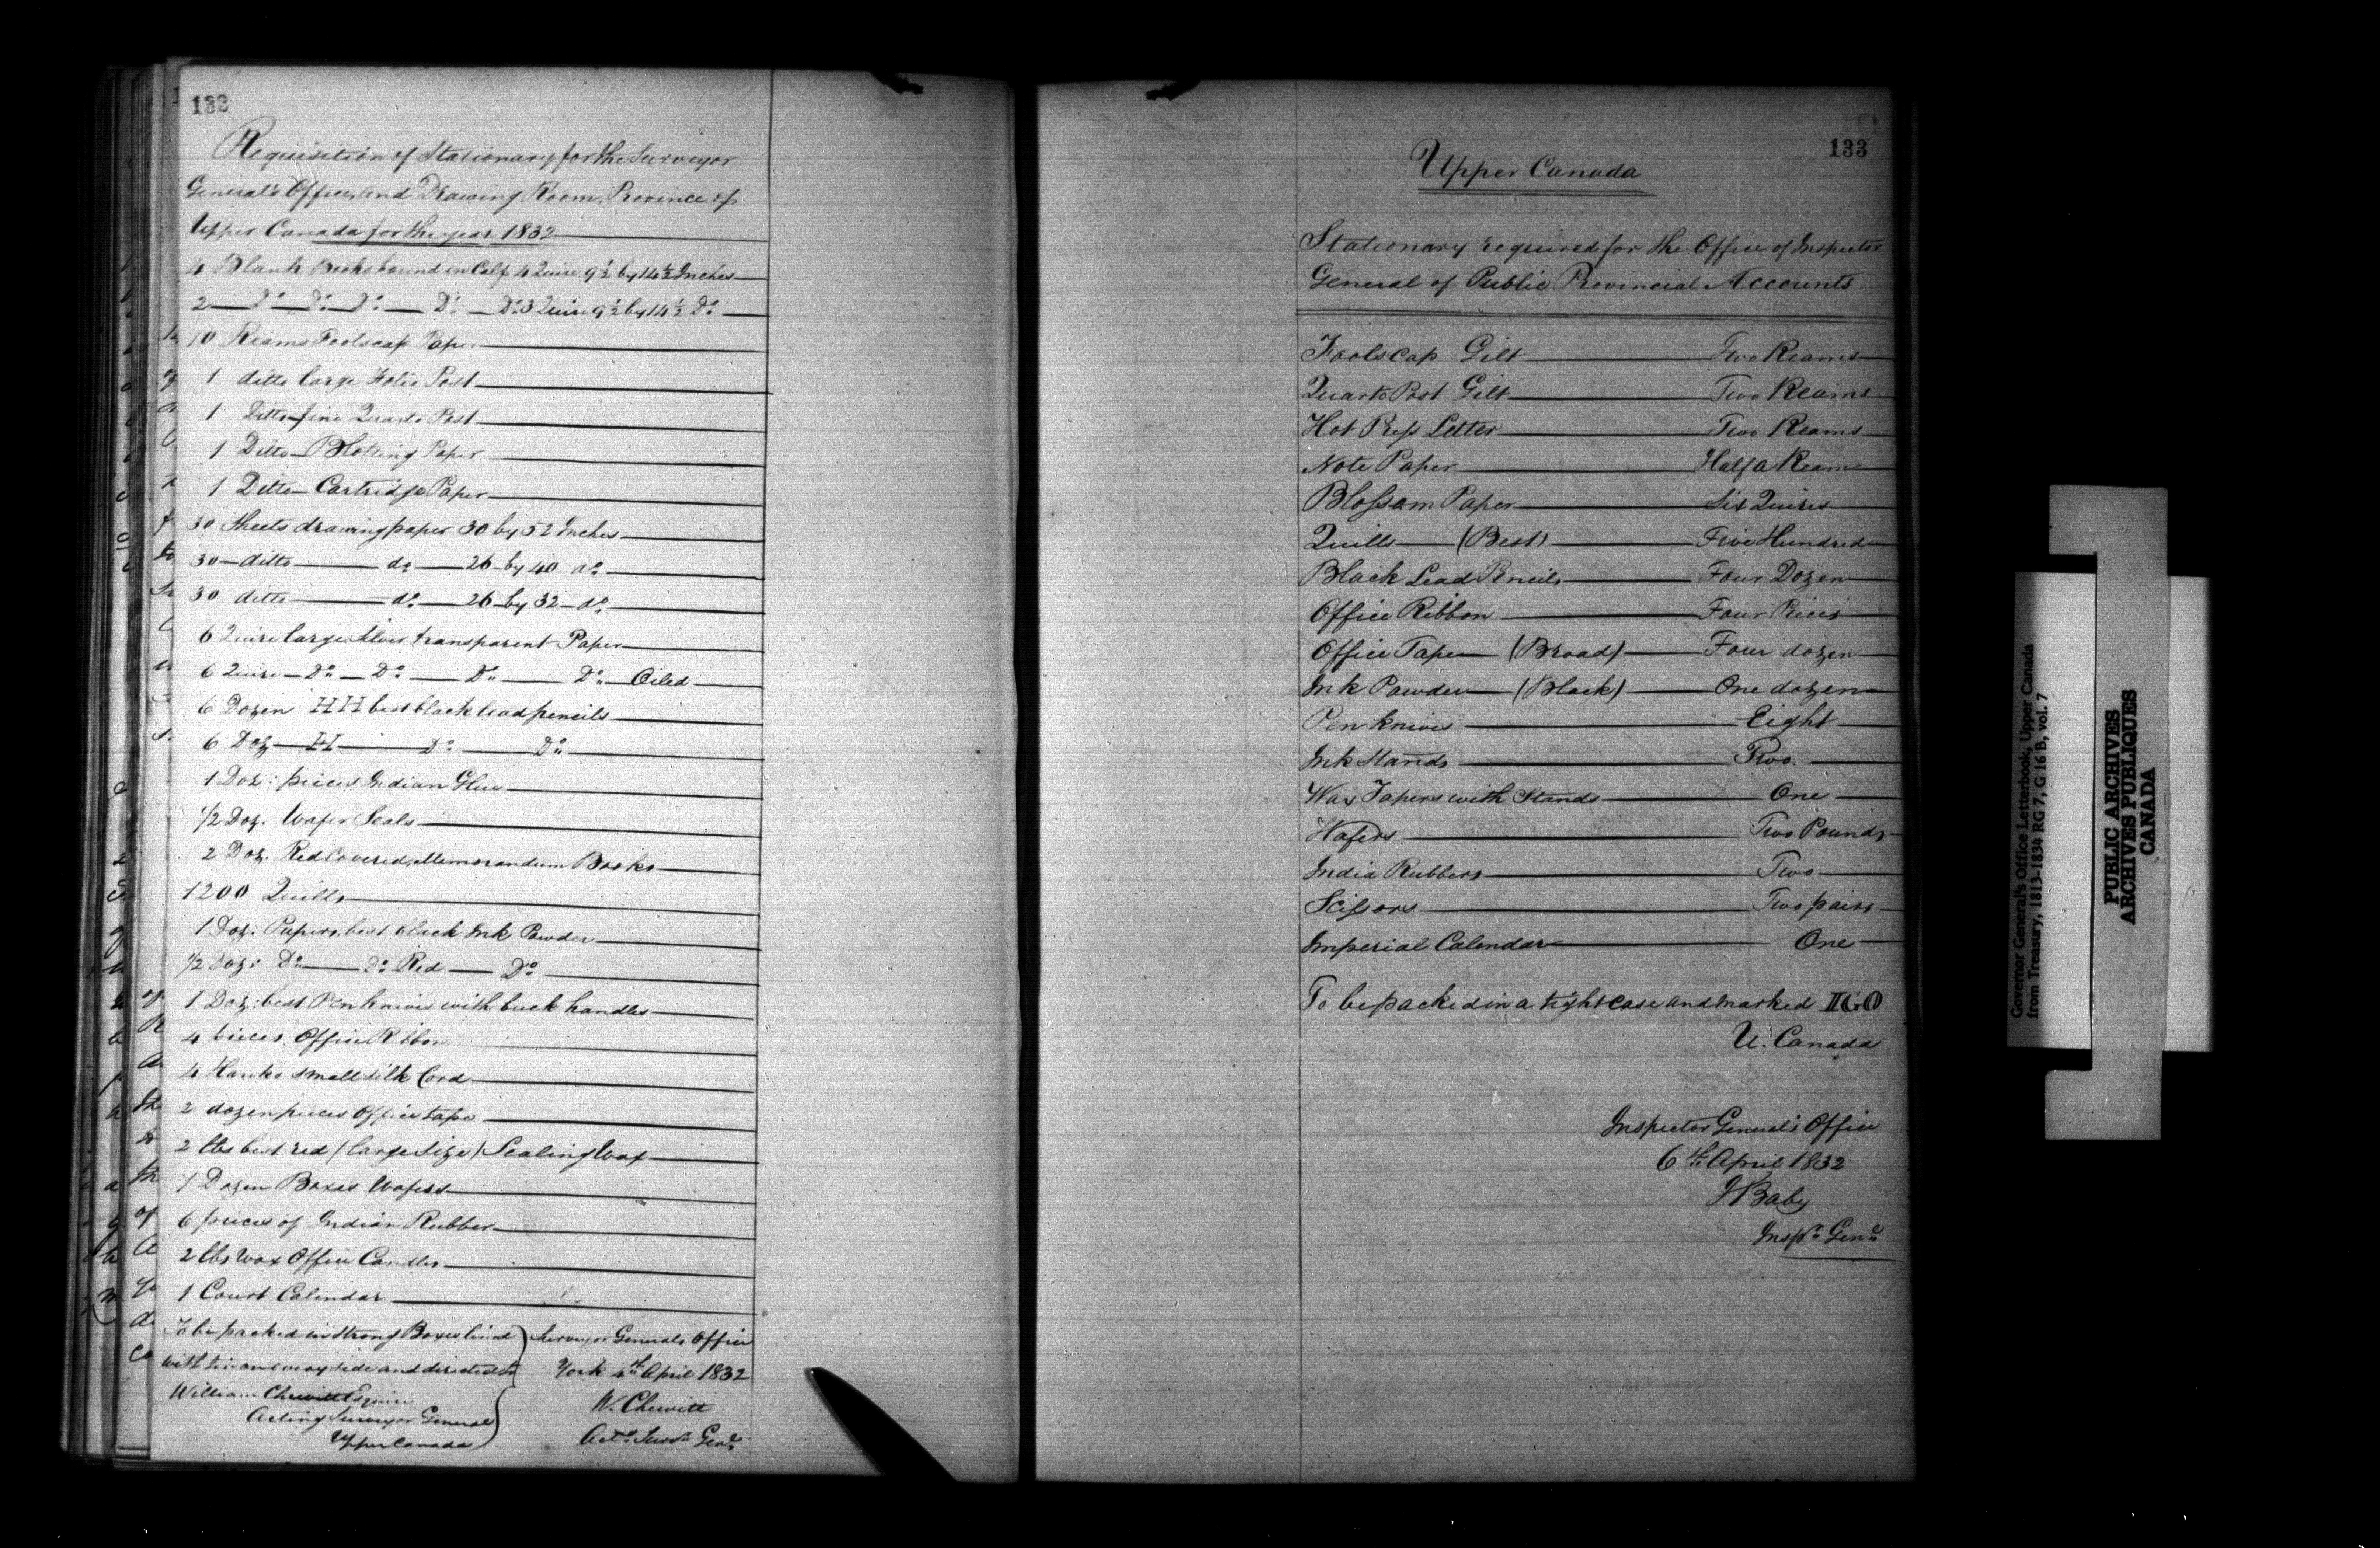 132
Requisition of Stationary for the Surveyor
General's Office, and Drawing Room, Province of
Upper Canada for the year 1832
4 Blank Books bound in Calf 4 Quire 9½ by 14½ Inches
2 — Do — Do — Do — Do — Do 3 Quire 9½ by 14½ Do
10 Reams Foolscap Paper
1 ditto large Folio Post
1 Ditto fine Quarto Post
1 Ditto Blotting Paper
1 Ditto Cartridge Paper
30 Sheets drawing paper 30 by 52 Inches
30 ditto — do — 26 by 40 do
30 ditto — do — 26 by 32 do
6 Quire large silver transparent Paper
6 Quire — Do — Do — Do — Do Oiled
6 Dozen HH best black lead pencils
6 Doz — H — Do — Do
1 Doz: pieces Indian Glue
1/2 Doz. Wafer Seals
2 Doz. Red Covered Memorandum Books
1200 Quills
1 Doz. Papers, best black Ink Powder
1/2 Doz: Do — Do Red — Do
1 Doz: best Pen knives with buck handles
4 pieces Office Ribbon
4 Hanks small silk Cord
2 dozen pieces Office tape
2 lbs best red (large size) Sealing Wax
1 Dozen Boxes Wafers
6 pieces of Indian Rubber
2 lbs Wax Office Candles
1 Court Calendar
To be packed in strong Boxes lined
with tin on every side and directed to
William Chewitt Esquire
Acting Surveyor General
Upper Canada
Surveyor Generals Office
York 4th April 1832
W. Chewitt
Actg Survr Genl
133
Upper Canada
Stationary required for the Office of Inspector
General of Public Provincial Accounts
Foolscap Gilt — Two Reams
Quarto Post Gilt — Two Reams
Hot Press Letter — Two Reams
Note Paper — Half a Ream
Blossom Paper — Six Quires
Quills — (Best) — Five Hundred
Black Lead Pencils — Four Dozen
Office Ribbon — Four Pieces
Office Tape — (Broad) — Four dozen
Ink Powder — (Black) — One dozen
Pen knives — Eight
Ink Stands — Two.
Wax Tapers with Stands — One
Wafers — Two Pounds
India Rubbers — Two
Scissors — Two pairs
Imperial Calendar — One
To be packed in a tight case and marked IGO
U. Canada
Inspector General's Office
6th April 1832
J Baby
Inspr Genl
Governor General's Office Letterbook, Upper Canada
from Treasury, 1813-1834 RG 7, G 16 B, vol. 7
PUBLIC ARCHIVES
ARCHIVES PUBLIQUES
CANADA